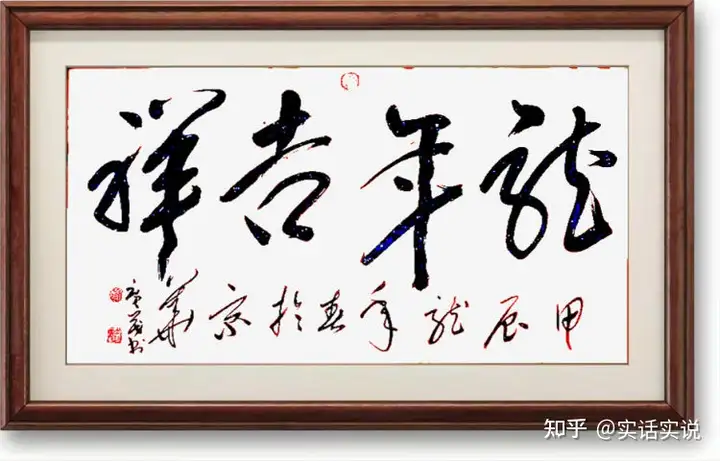 龍年吉祥
甲辰龍年春於京華
书
知乎 @实话实说